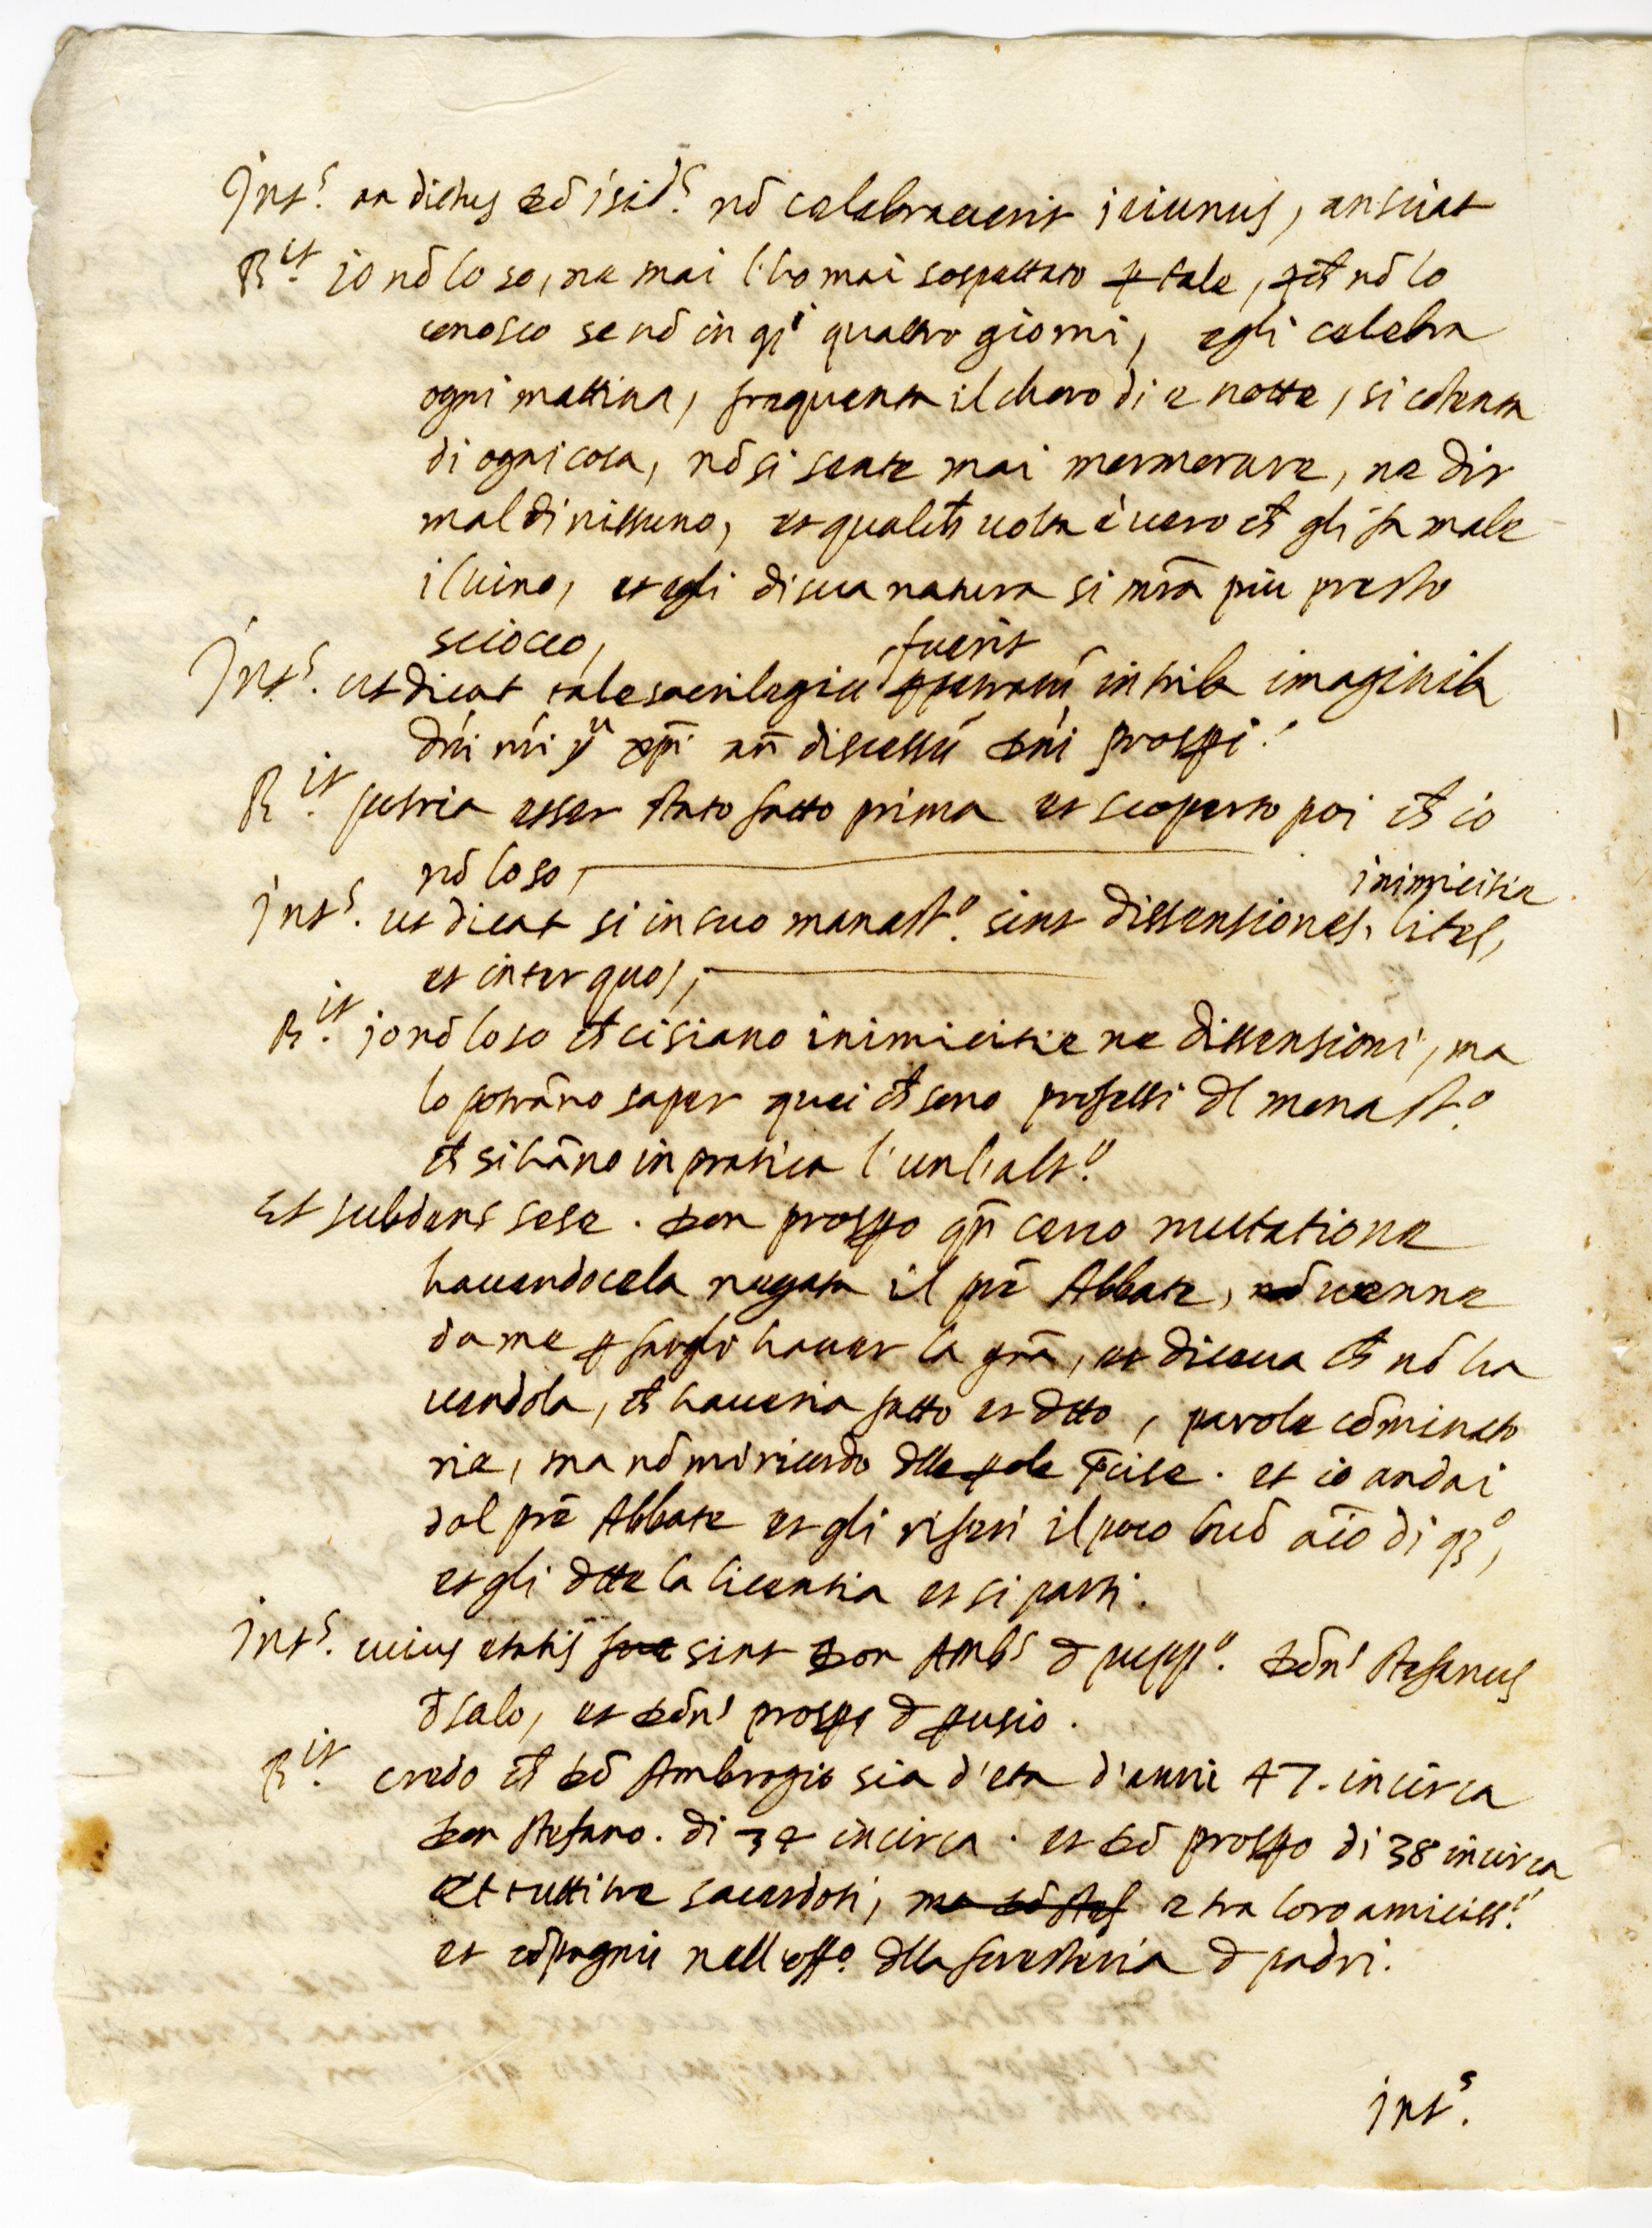 Int.s an dictus dō isid.s nō celebraverit ieiunus, an sciat
R.it io nō lo so, ne mai l'ho mai sospettato p tale, pch nō lo
conosco se nō in qti quattro giorni, egli celebra
ogni mattina, frequenta il choro di e notte, si cōtenta
di ogni cosa, nō si sente mai mormorare, ne dir
mal di nissuno, et qualch volta è vero ch gli fa male
il vino, et egli di sua natura si mrā più presto
sciocco,
Int.s ut dicat tale sacrilegiū fuerit ppetratū in trib imaginib
Dni nri y xpi an discessū Dni prospi.
R.it potria esser stato fatto prima et scoperto poi ch io
nō lo so,
Int.s ut dicat si in suo monast.o sint dissensiones, inimicitie lites,
et inter quos,
R.it io nō lo so ch ci siano inimicitie ne dissensioni, ma
lo potrāno saper quei ch sono professi dl monast.o
ch si hāno in pratica l'un l'alt.o
Et subdens sese. Don prospo qn cerco mutatione
havendocela negata il prē Abbate, venne
da me p fargli haver la grā, et diceva ch nō ha
vendola, ch haveria fatto et dtto, parole cōminato
rie, ma nō mi ricordo dlle pcise. et io andai
dal prē Abbate et gli riferi il poco buō aīo di qsto,
et gli dtte la licentia et si parti.
Int.s cuius etatis sint Don Amb.s d Don.s Stefanus
d salo, et Don.s prosps d
R.it credo ch Dō Ambrogio sia d'eta d'anni 47. incirca
Don Stefano. di 34 incirca. et Dō prospo di 38 incirca
et tutti tre sacerdoti, e tra loro amiciss.i
et cōpagni nell offo. dlla foresteria d padri.
Int.s